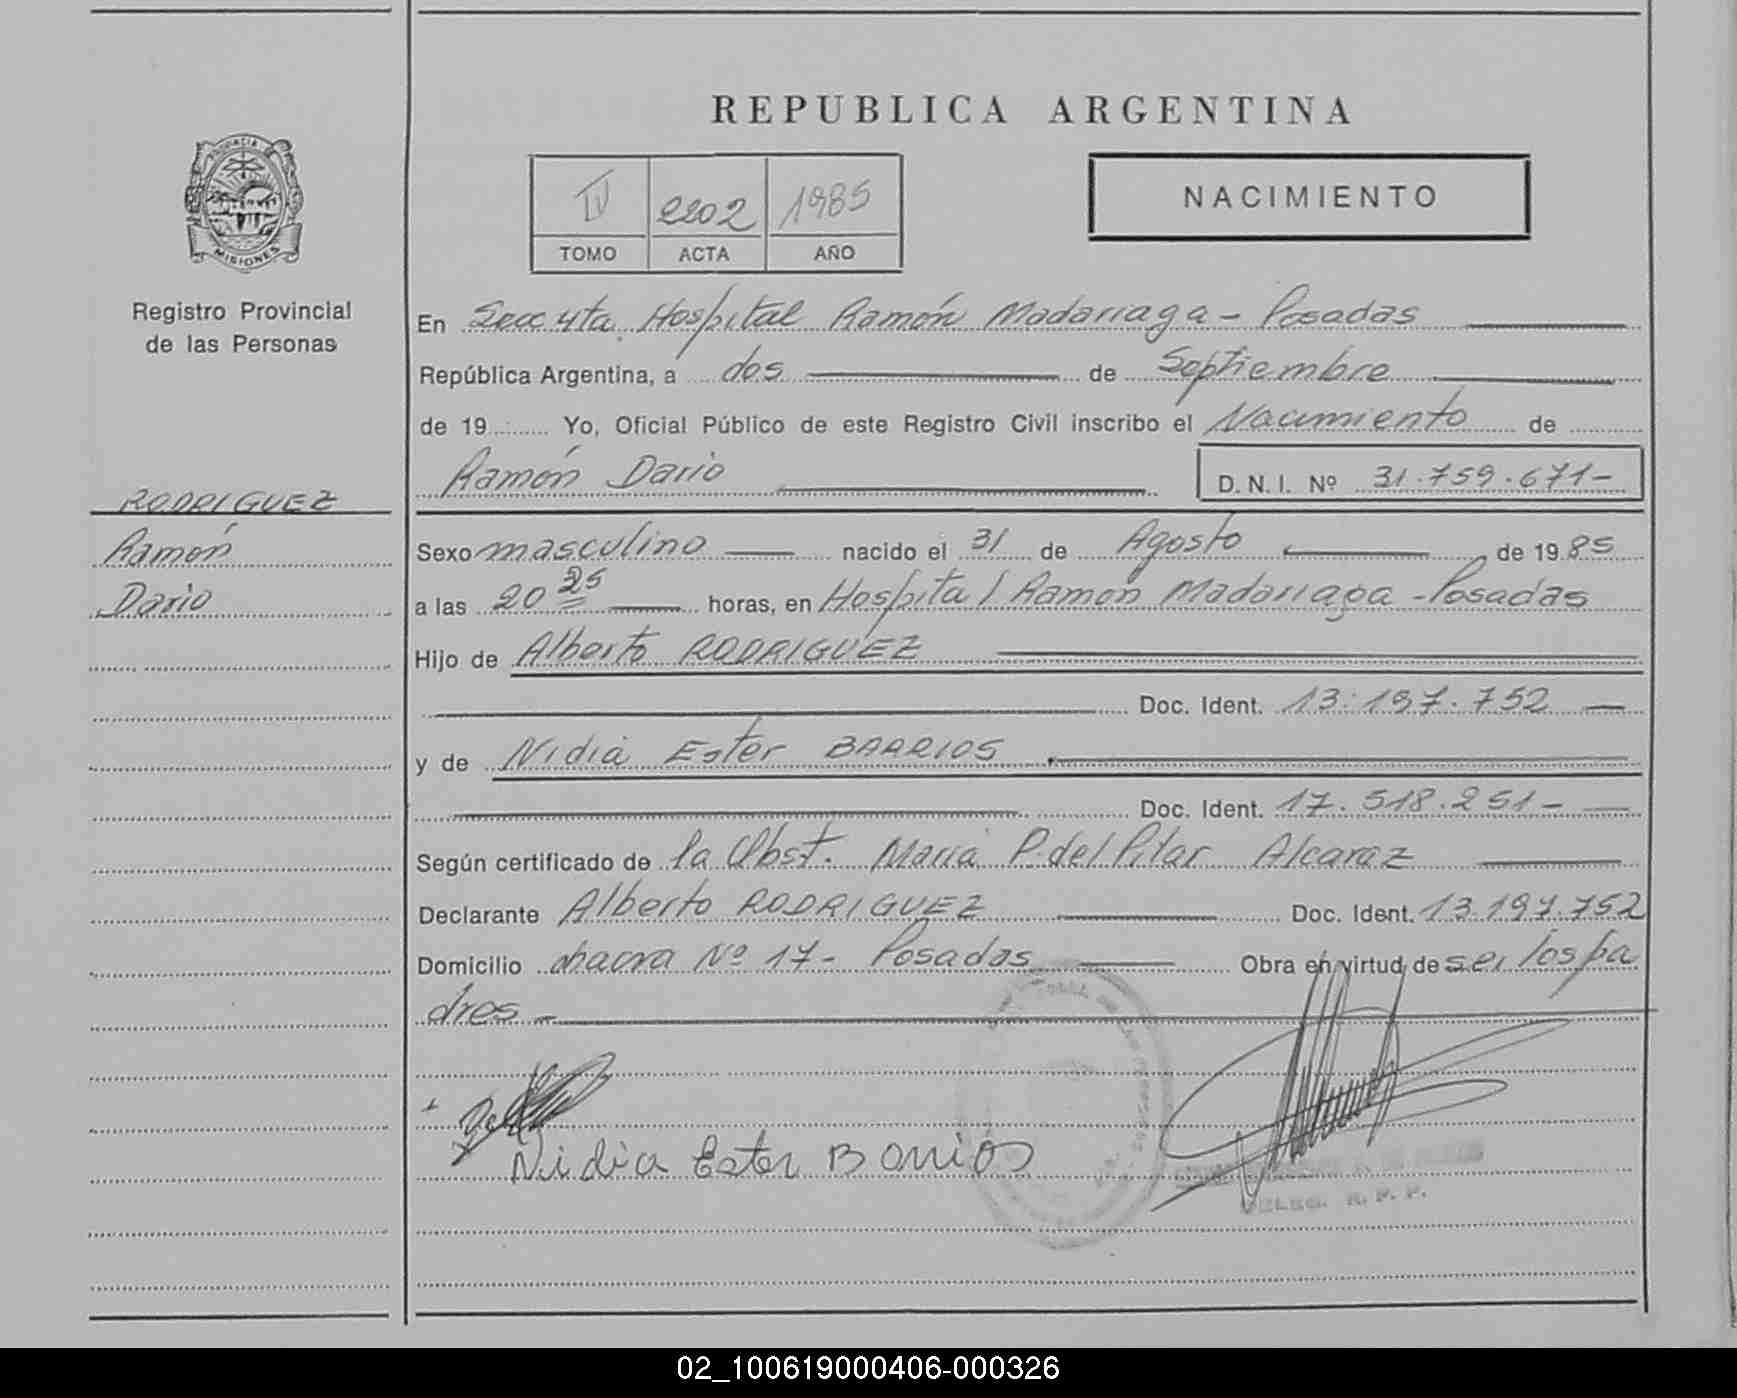 REPUBLICA ARGENTINA
PROVINCIA DE
MISIONES
IV 2202 1985
TOMO ACTA AÑO
NACIMIENTO
Registro Provincial
de las Personas
En Secc 4ta. Hospital Ramón Madariaga - Posadas
República Argentina, a dos de Septiembre
de 19 Yo, Oficial Público de este Registro Civil inscribo el Nacimiento de
Ramón Dario D.N.I. Nº 31.759.671-
RODRIGUEZ
Ramón
Dario
Sexo masculino nacido el 31 de Agosto de 1985
a las 20 25 horas, en Hospital Ramon Madariaga - Posadas
Hijo de Alberto RODRIGUEZ
Doc. Ident. 13.197.752
y de Nidia Ester BARRIOS
Doc. Ident. 17.518.251-
Según certificado de la Obst. Maria P. del Pilar Alcaraz
Declarante Alberto RODRIGUEZ Doc. Ident. 13.197.752
Domicilio chacra Nº 17- Posadas Obra en virtud de ser los pa
dres -
Nidia Ester Barrios
DELEG. R. P. P.
02_100619000406-000326